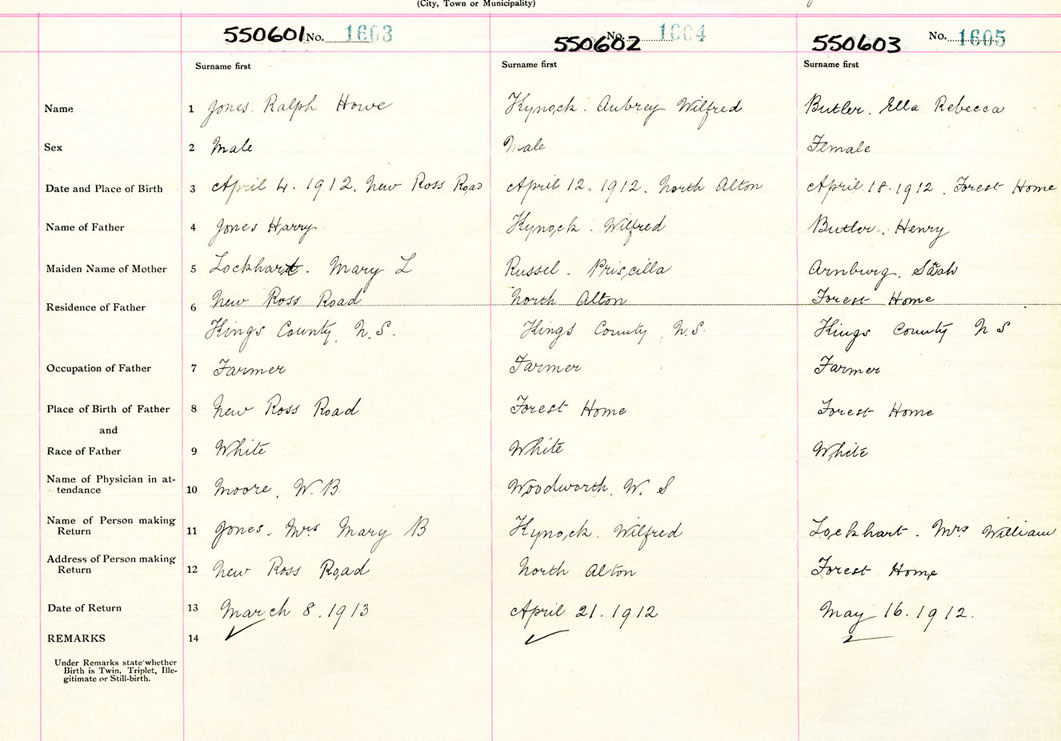 (City, Town or Municipality)
550601 No. 1603
550602 No. 1604
550603 No. 1605
Surname first
Surname first
Surname first
Name 1 Jones. Ralph Howe
Kynock. Aubrey Wilfred
Butler. Ella Rebecca
Sex 2 Male
Male
Female
Date and Place of Birth 3 April 4. 1912. New Ross Road
April 12. 1912. North Alton
April 18. 1912. Forest Home
Name of Father 4 Jones Harry
Kynock. Wilfred
Butler. Henry
Maiden Name of Mother 5 Lockhart. Mary L
Russel. Priscilla
Arnburg. Sarah
Residence of Father 6 New Ross Road
North Alton
Forest Home
Kings County, N.S.
Kings County, N.S.
Kings County N S
Occupation of Father 7 Farmer
Farmer
Farmer
Place of Birth of Father 8 New Ross Road
Forest Home
Forest Home
and
Race of Father 9 White
White
White
Name of Physician in at-
tendance 10 Moore, W. B.
Woodworth, W. S
Name of Person making
Return 11 Jones. Mrs Mary B
Kynock. Wilfred
Lockhart. Mrs William
Address of Person making
Return 12 New Ross Road
North Alton
Forest Home
Date of Return 13 March 8. 1913
April 21. 1912
May 16. 1912.
REMARKS 14
Under Remarks state whether
Birth is Twin, Triplet, Ille-
gitimate or Still-birth.